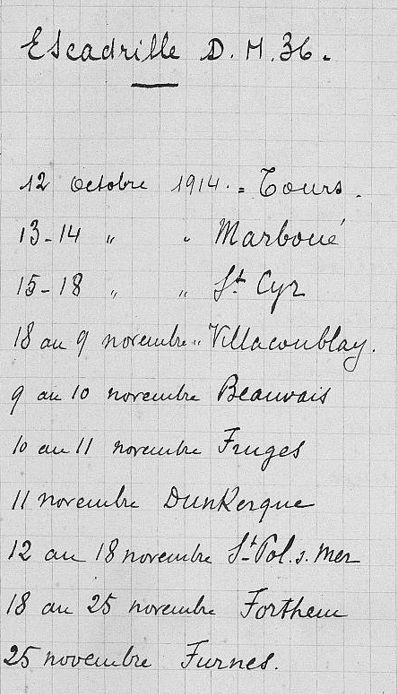 Escadrille D. M. 36.
12 Octobre 1914. = Tours.
13-14 " " Marboué
15-18 " " St Cyr
18 au 9 novembre " Villacoublay.
9 au 10 novembre Beauvais
10 au 11 novembre Fruges
11 novembre Dunkerque
12 au 18 novembre St Pol. s. mer
18 au 25 novembre Forthem
25 novembre Furnes.